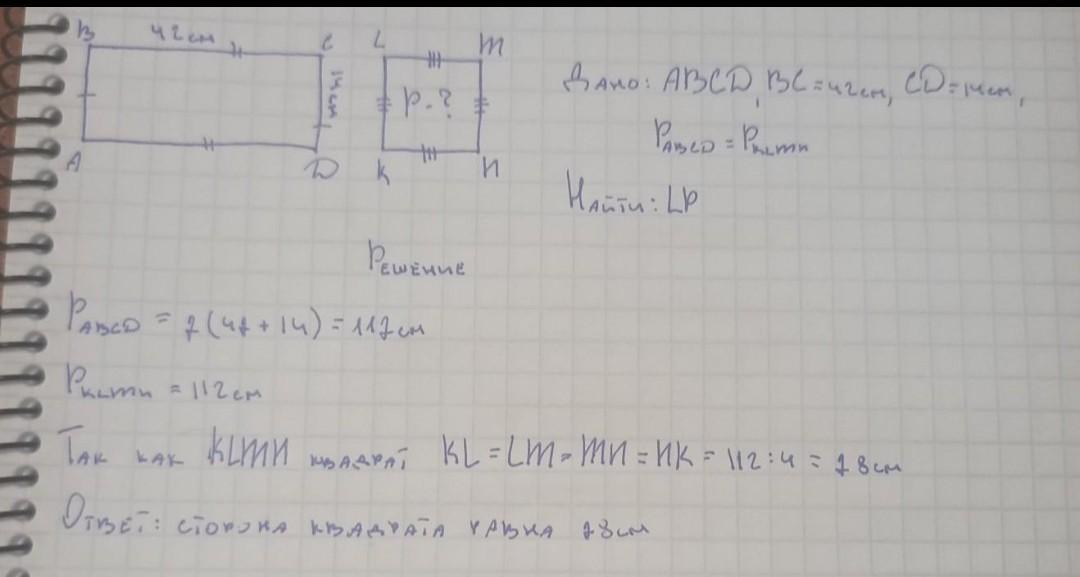 B 42см C L M
14 см
P-?
A D K N
Дано: ABCD, BC=42см, CD=14см,
P ABCD = P KLMN
Найти: LP
Решение
P ABCD = 2(42+14)=112см
P KLMN = 112см
Так как KLMN квадрат KL=LM=MN=NK=112:4=28см
Ответ: сторона квадрата равна 28см